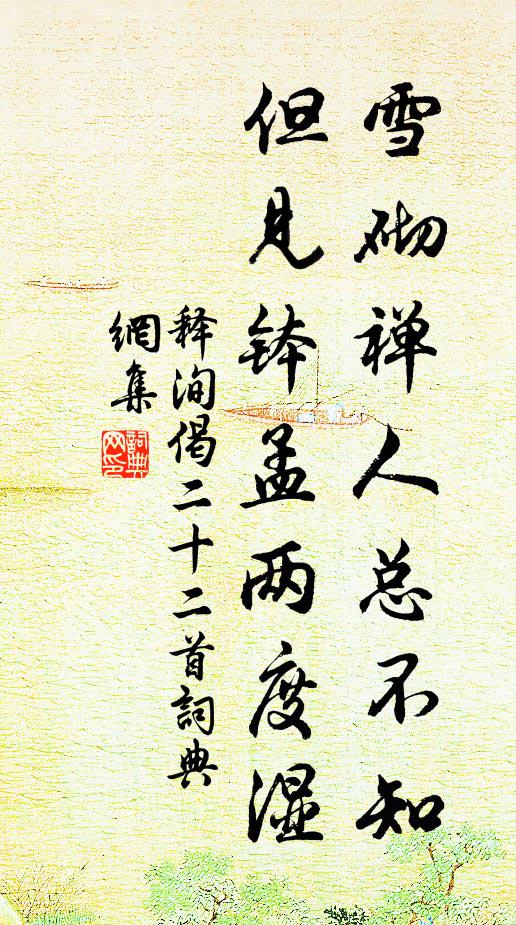 雪砌禅人总不知
但见钵盂两度湿
释洵偈二十二首詞典
網集
詞典
网印